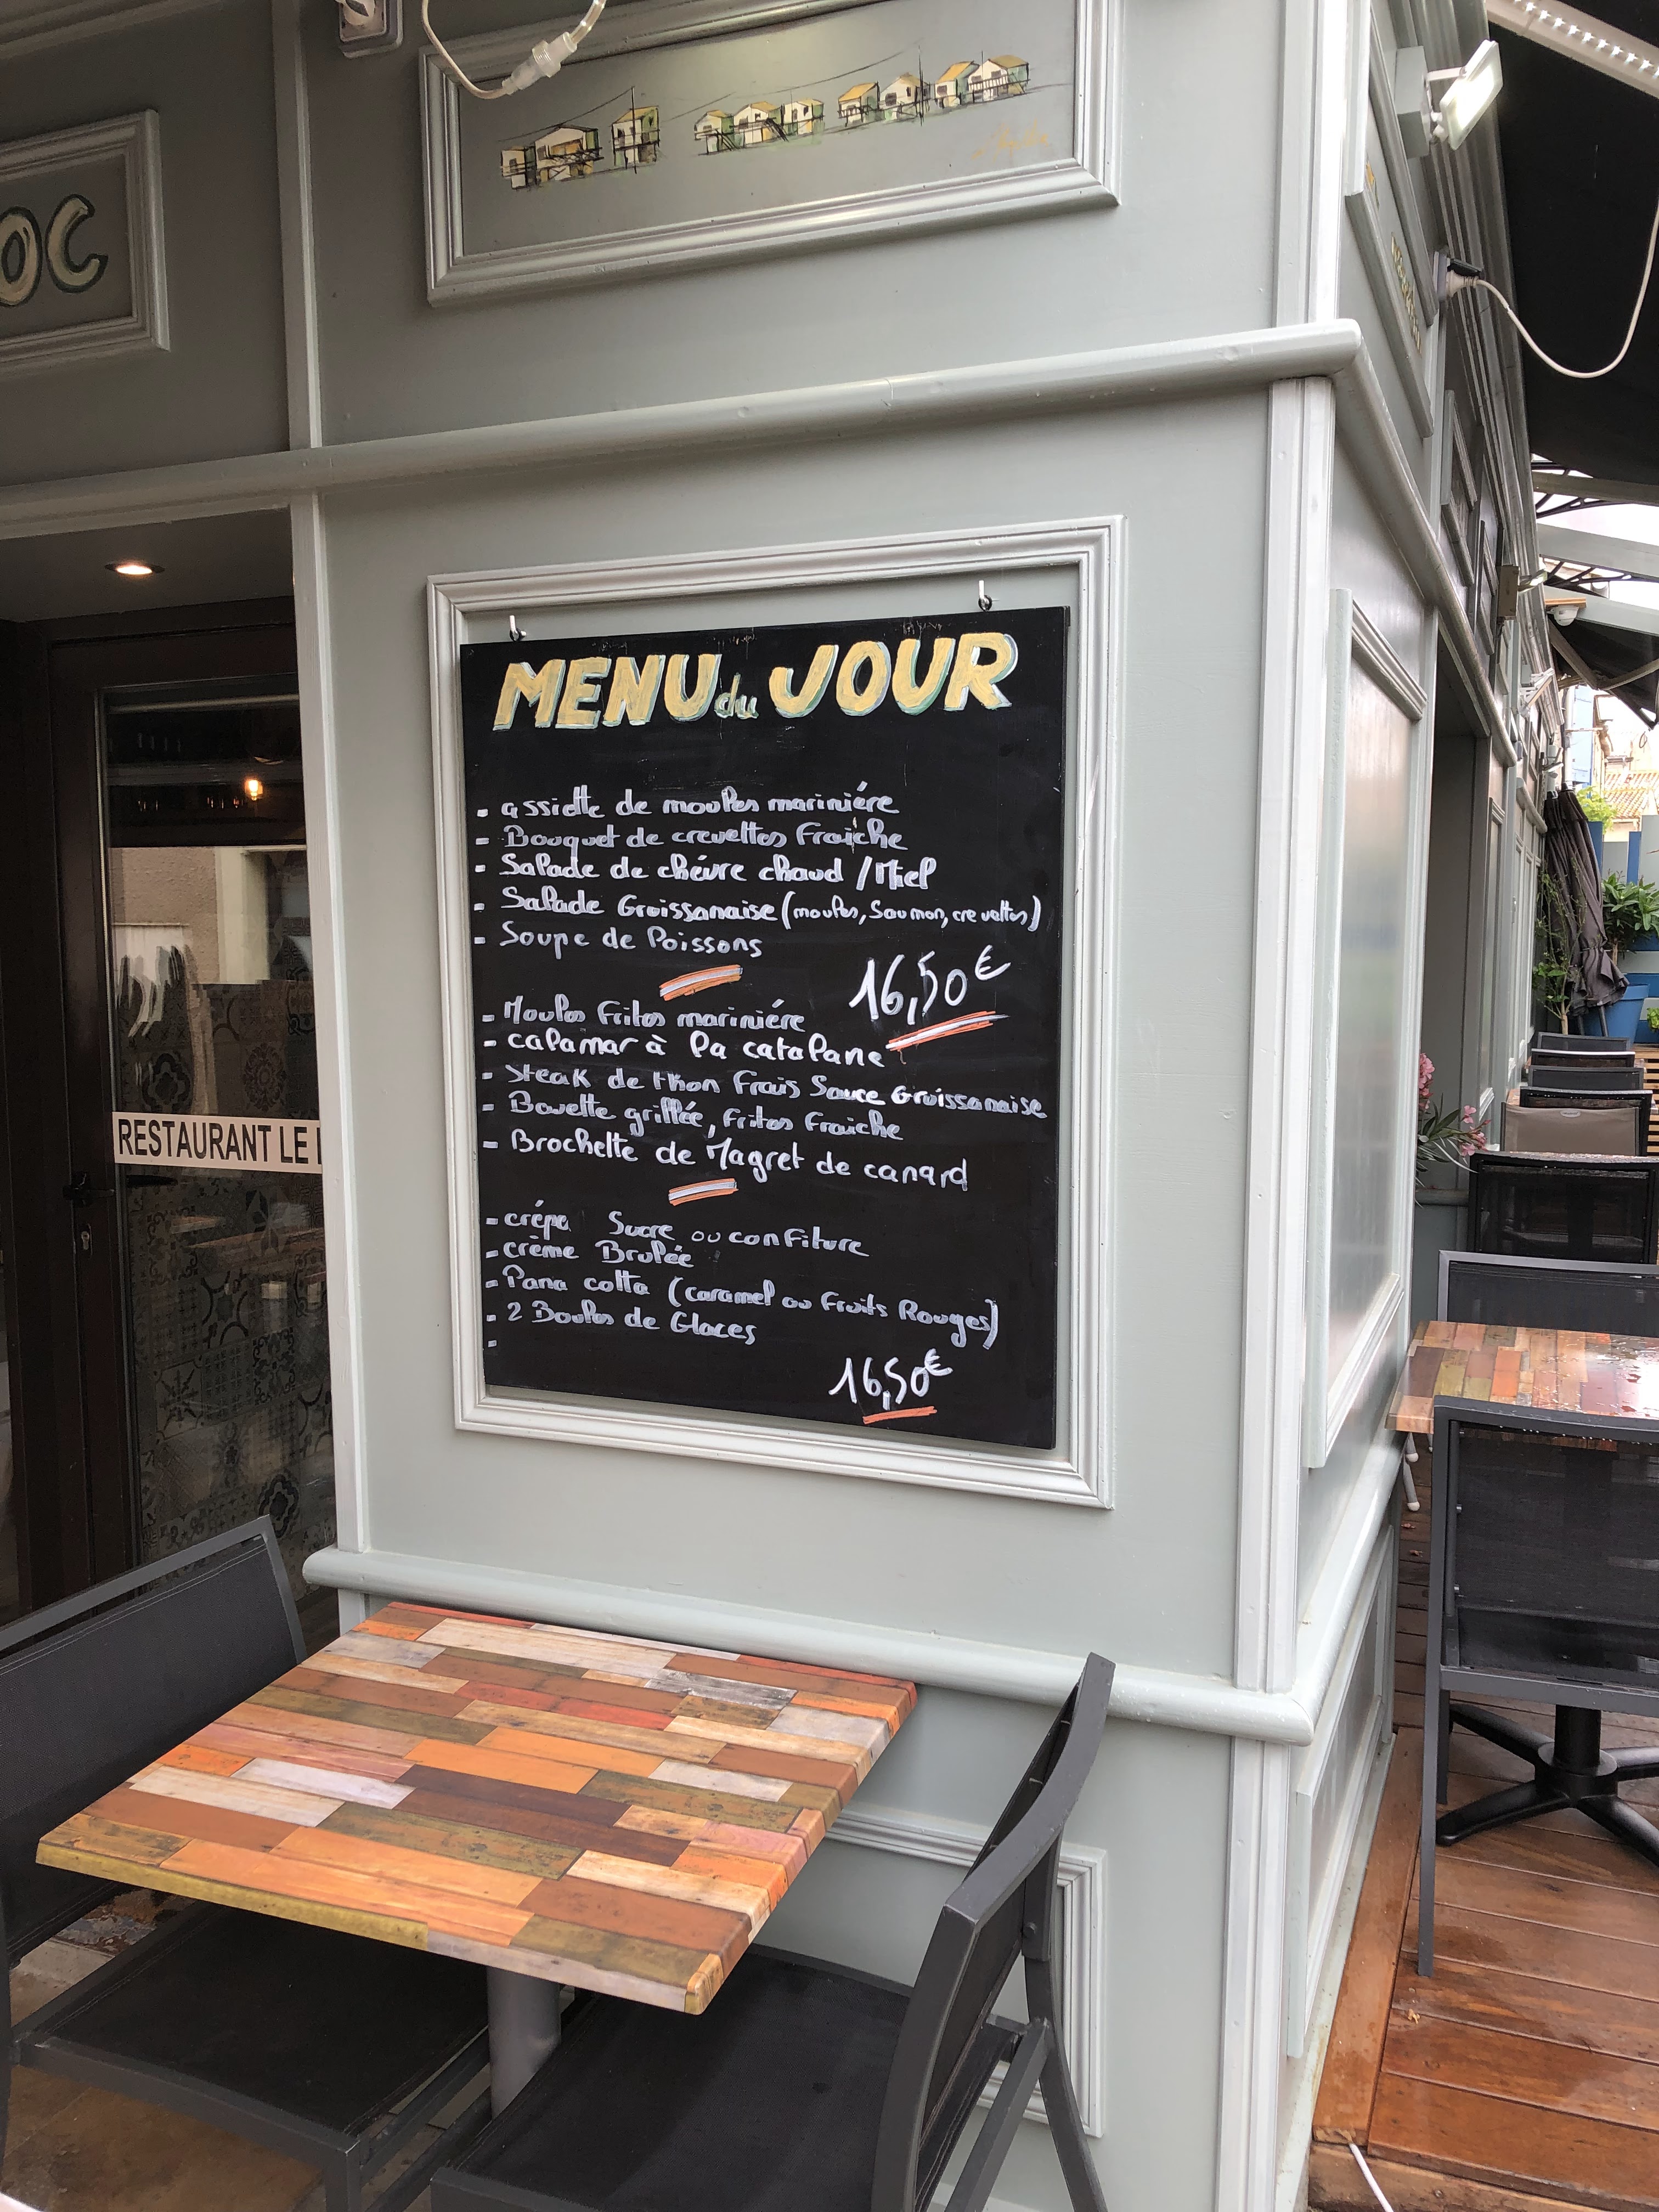 OC
MENU du JOUR
- assiette de moules mariniére
- Bouquet de crevettes Fraiche
- Salade de chévre chaud / Miel
- Salade Gruissanaise (moules, Saumon, crevettes)
- Soupe de Poissons
16,50€
- Moules Frites mariniére
- calamar à la catalane
- Steak de thon Frais Sauce Gruissanaise
- Bavette grillée, Frites Fraiche
- Brochette de Magret de canard
- crépe Sucre ou confiture
- crème Brulée
- Pana cotta (caramel ou Fruits Rouges)
- 2 Boules de Glaces
-
16,50€
RESTAURANT LE